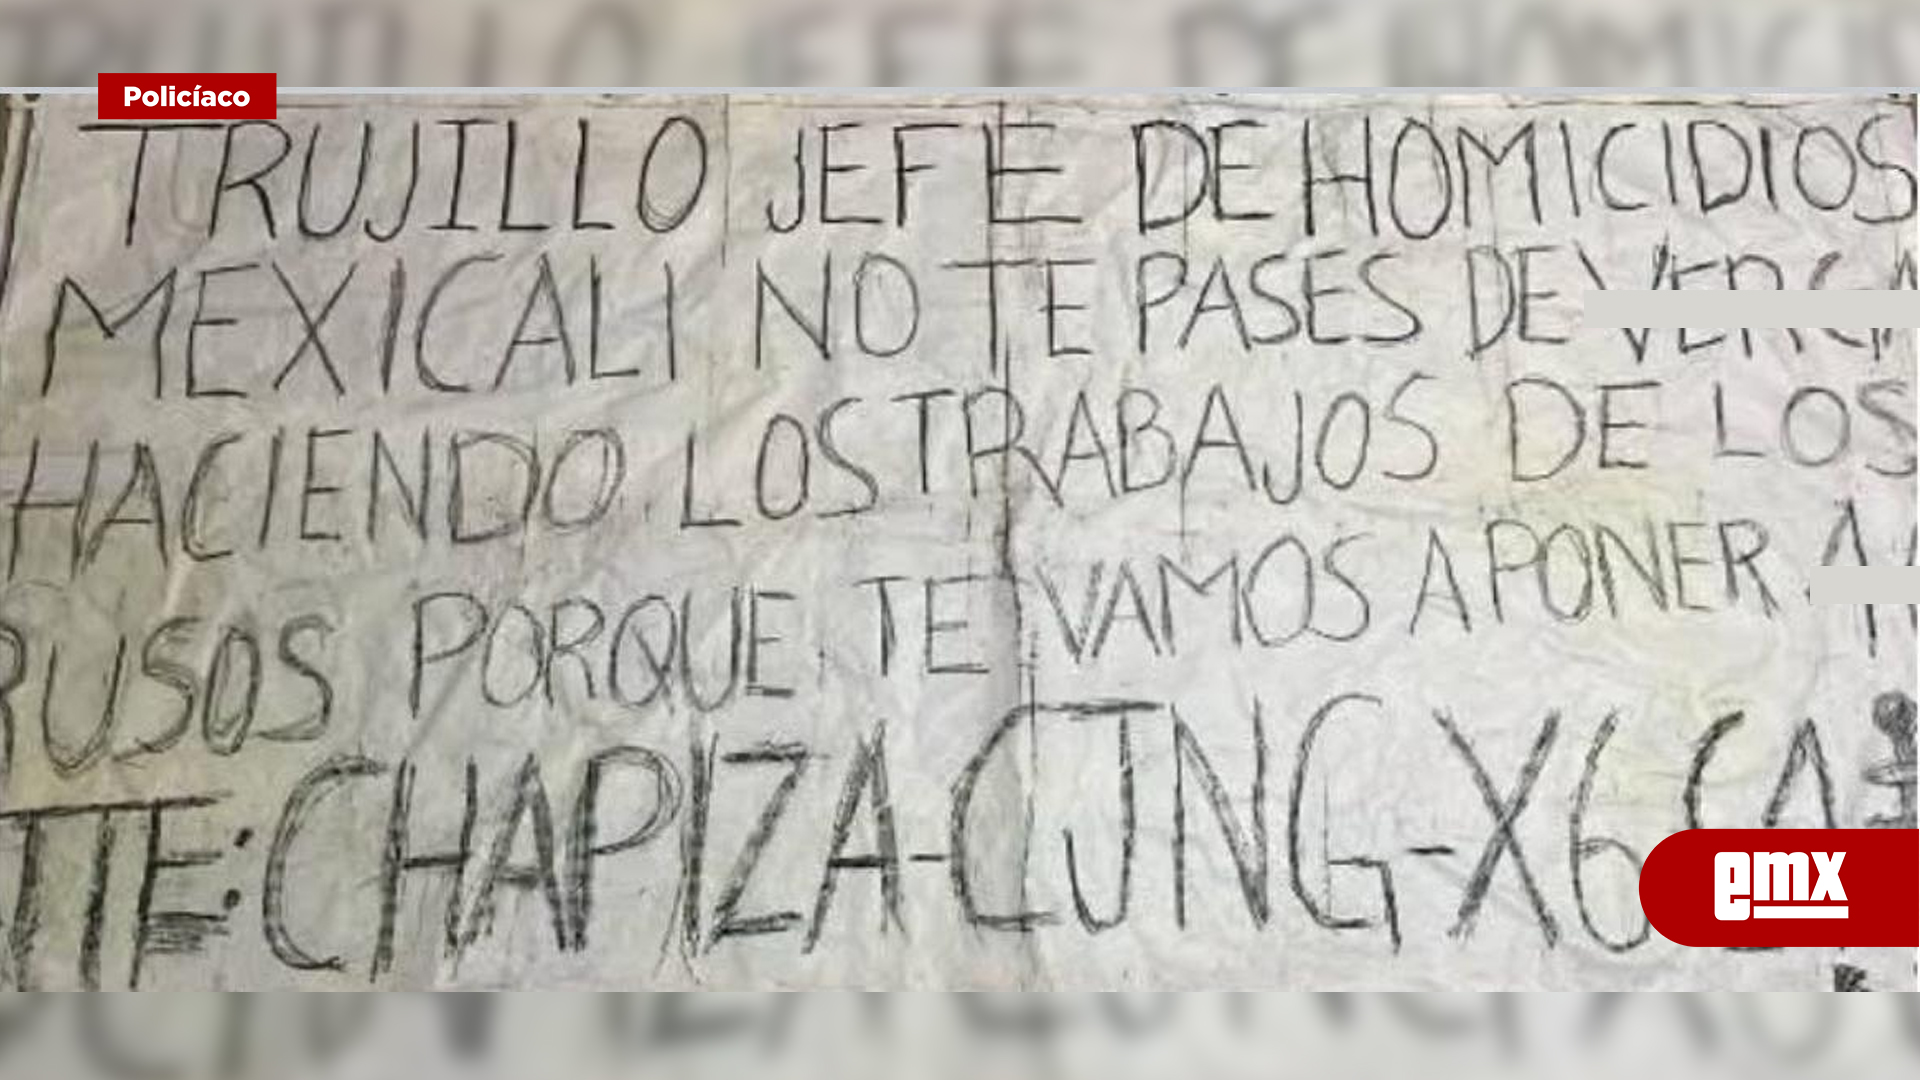 Policíaco
TRUJILLO JEFE DE HOMICIDIOS
MEXICALI NO TE PASES DE VERGA
HACIENDO LOS TRABAJOS DE LOS
RUSOS PORQUE TE VAMOS A PONER
ATTE: CHAPIZA-CJNG-X6
emx